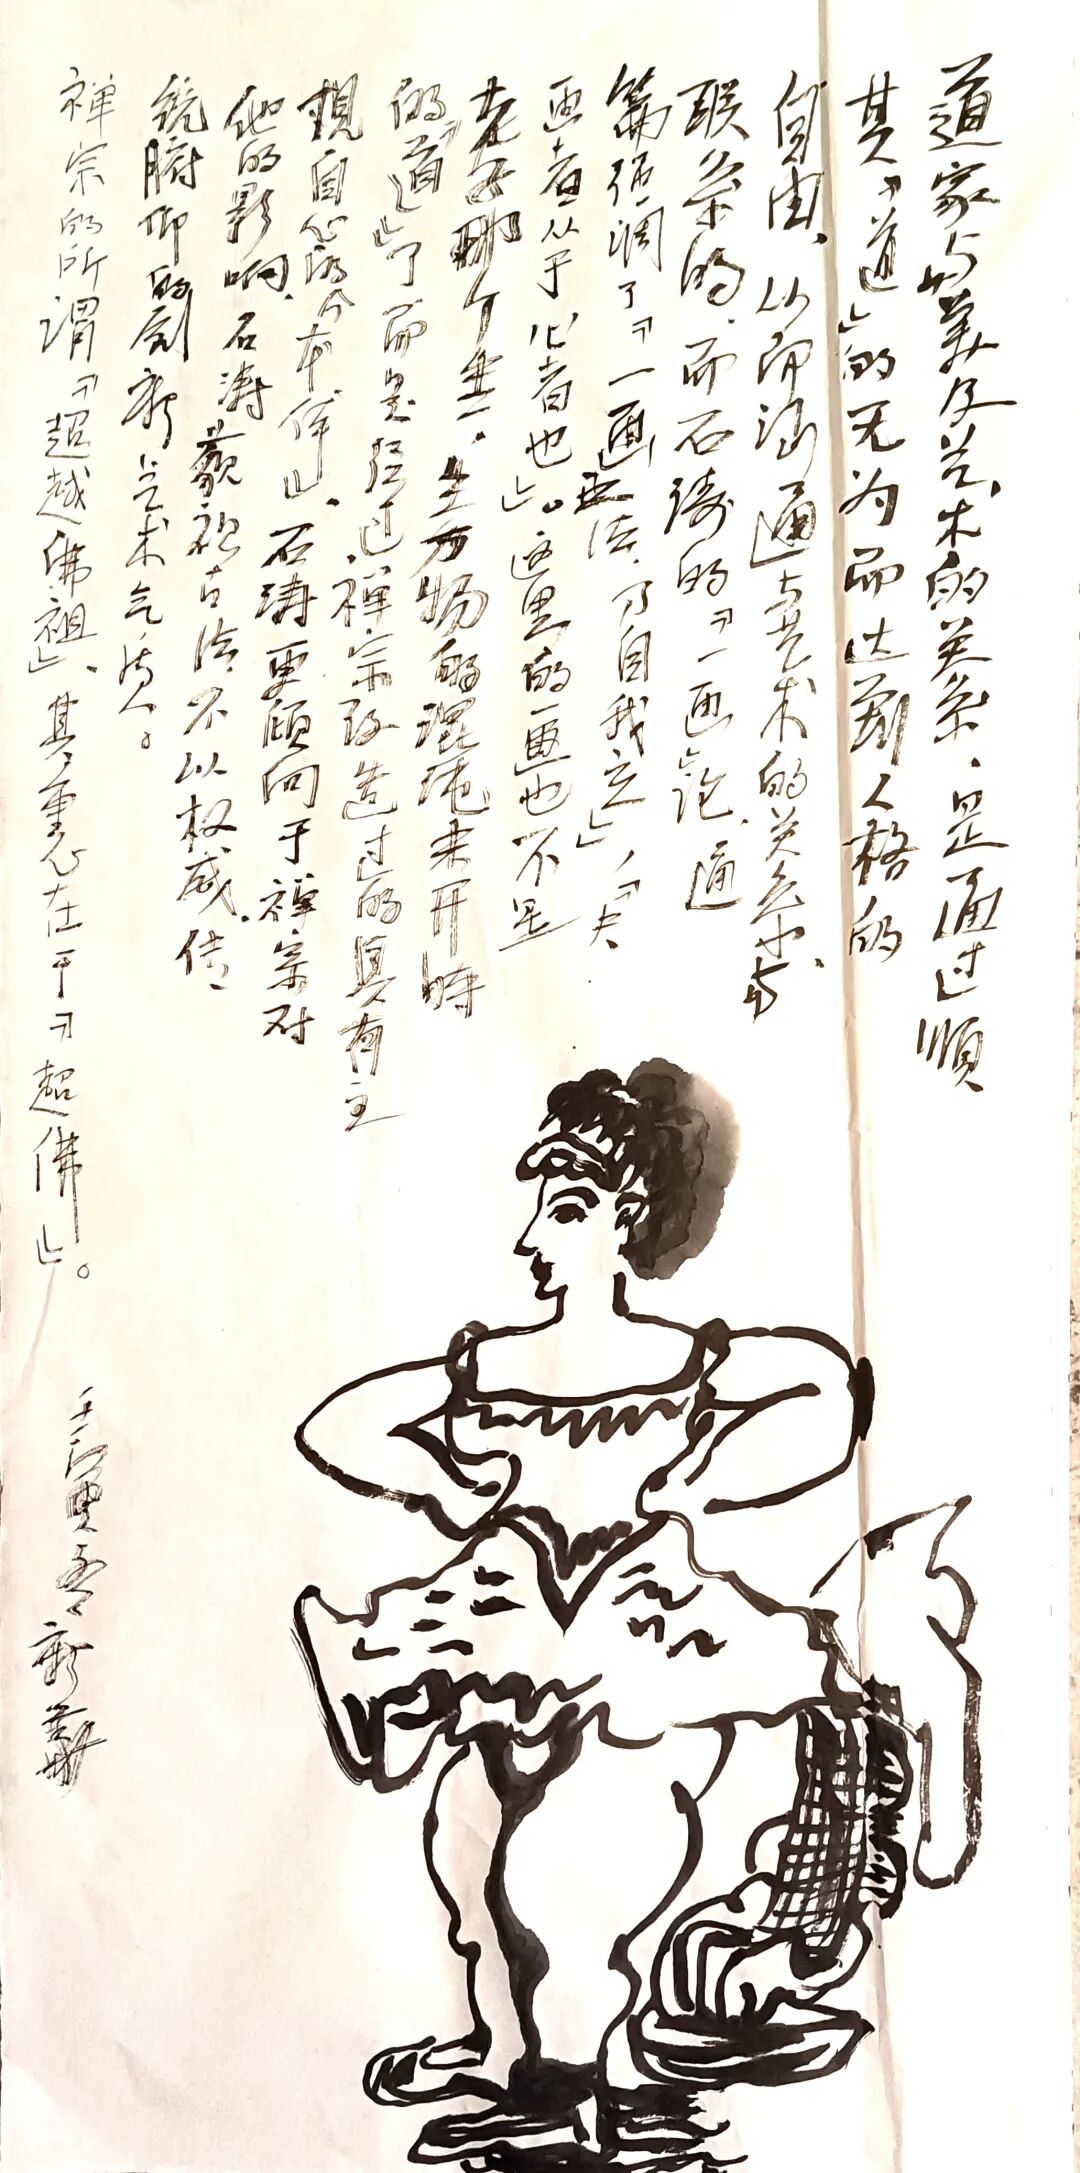 道家与美及艺术的关系，是通过顺
其「道」的无为而达到人格的
自由，从而沟通与艺术的关系也，与
联系的，而石涛的「一画」论，通
篇强调了「一画之法，乃自我立」，「夫
画者从于心者也」。这里的一画也不是
老子那个无一，生万物的混沌未开时
的「道」了而是经过禅宗改造过的具有主
观自心的个本体」，石涛更倾向于禅宗对
他的影响，石涛藐视古法不以权威，传
统臂仰的创新艺术气质人。
禅宗的所谓「超越佛祖」，其重心在于「超佛」。